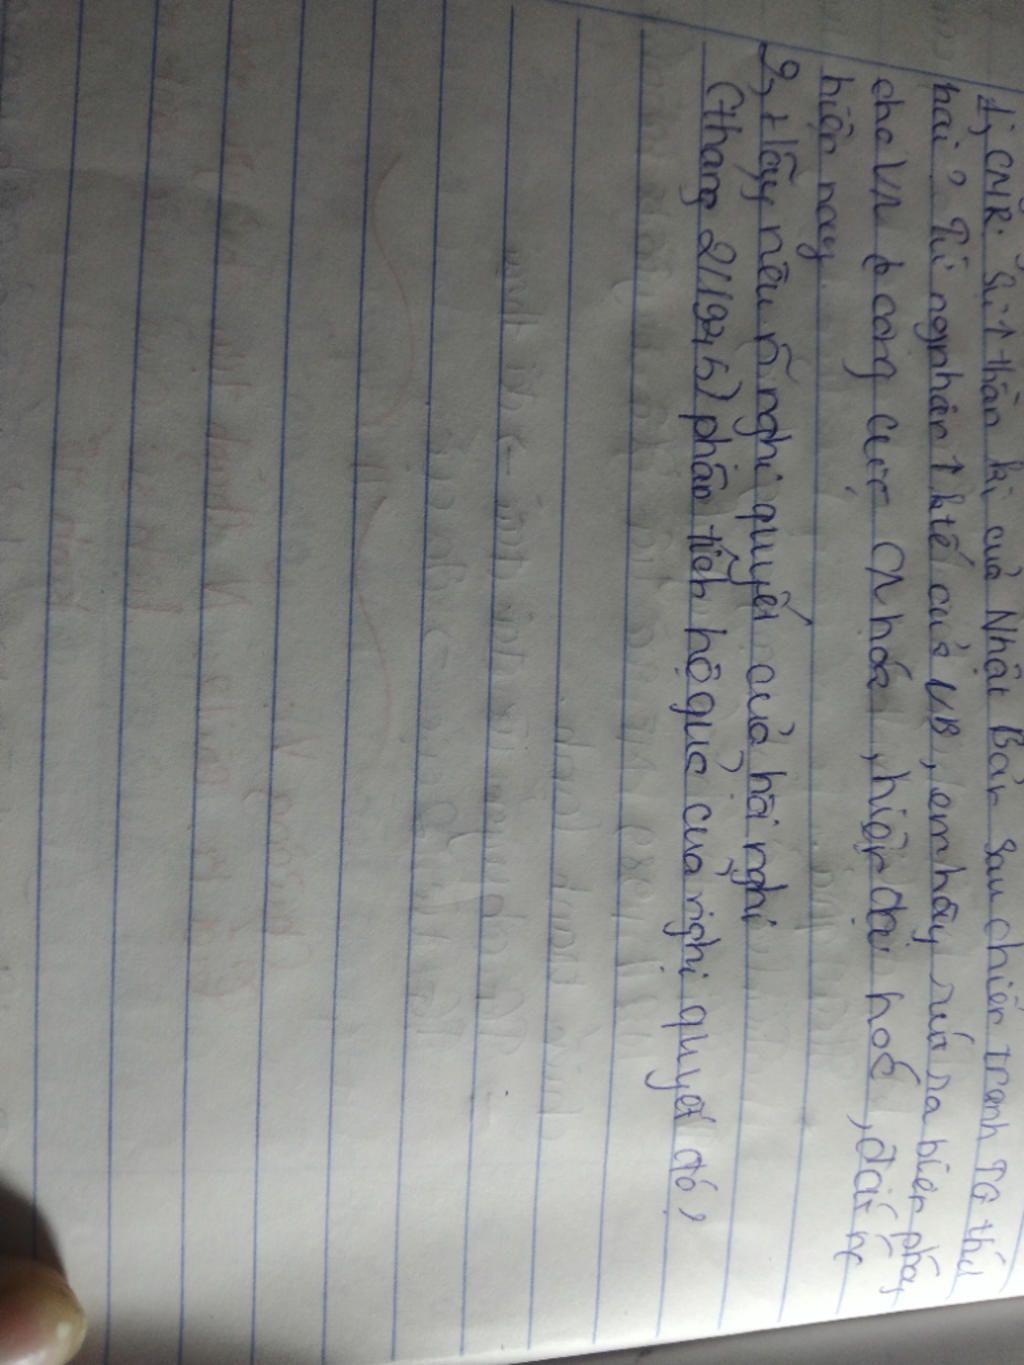 1, CMR: Sự ↑ thần kì của Nhật Bản sau chiến tranh TG thứ
hai? Từ ng nhân ↑ ktế của NB, em hãy rút ra biện pháp
cho VN trong cuộc CN hóa, hiện đại hoá, đất nc
hiện nay
2, Hãy nêu rõ nghị quyết của hội nghị
(tháng 2/1945) phân tích hệ quả của nghị quyết đó?